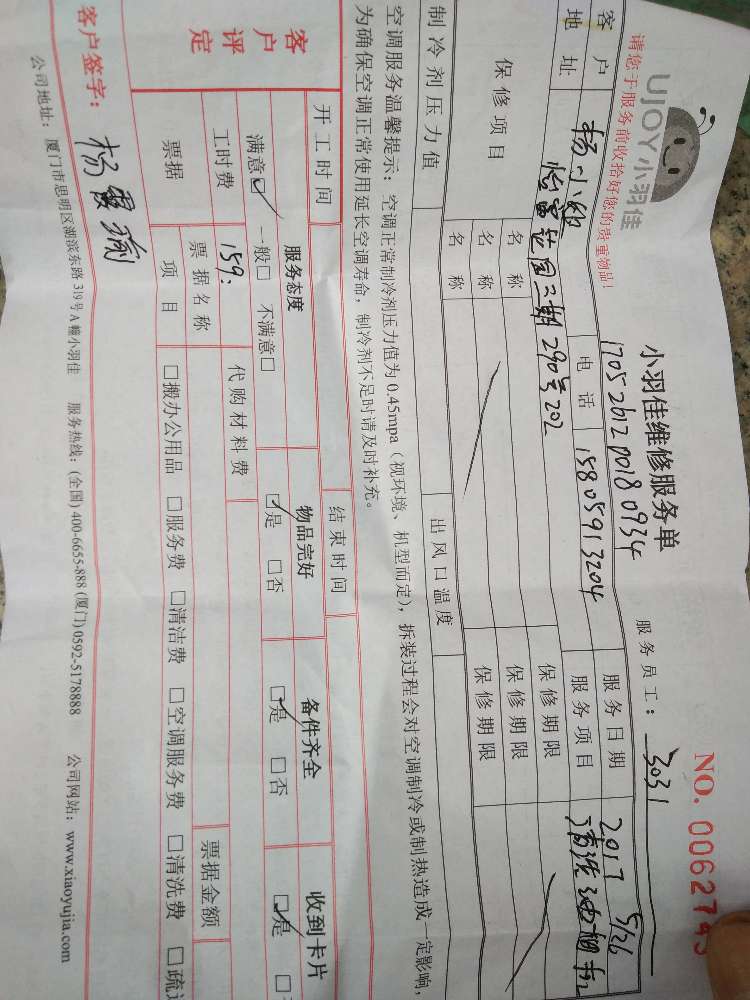 UJOY小羽佳
请您于服务前收拾好您的贵重物品!
小羽佳维修服务单
NO. 0062743
170526120180934
服务员工: 3031
客户 杨小姐 电话 15805913204 服务日期 2017 5/26
地址 怡富花园二期290号202 服务项目 清洗油烟机
保修项目 名称 保修期限
名称 保修期限
名称 保修期限
制冷剂压力值 出风口温度
空调服务温馨提示: 空调正常制冷剂压力值为0.45mpa(视环境、机型而定), 拆装过程会对空调制冷或制热造成一定影响,
为确保空调正常使用延长空调寿命, 制冷剂不足时请及时补充。
开工时间 结束时间
客户评定 服务态度 物品完好 备件齐全 收到卡片
满意☑ 一般□ 不满意□ ☑是 □否 ☑是 □否 ☑是 □
工时费 159: 代购材料费
票据 票据名称 票据金额
项目 □搬办公用品 □服务费 □清洁费 □空调服务费 □清洗费 □疏
客户签字: 杨霞瑜
公司地址: 厦门市思明区湖滨东路319号A幢小羽佳 服务热线: (全国) 400-6655-888 (厦门) 0592-5178888 公司网站: www.xiaoyujia.com